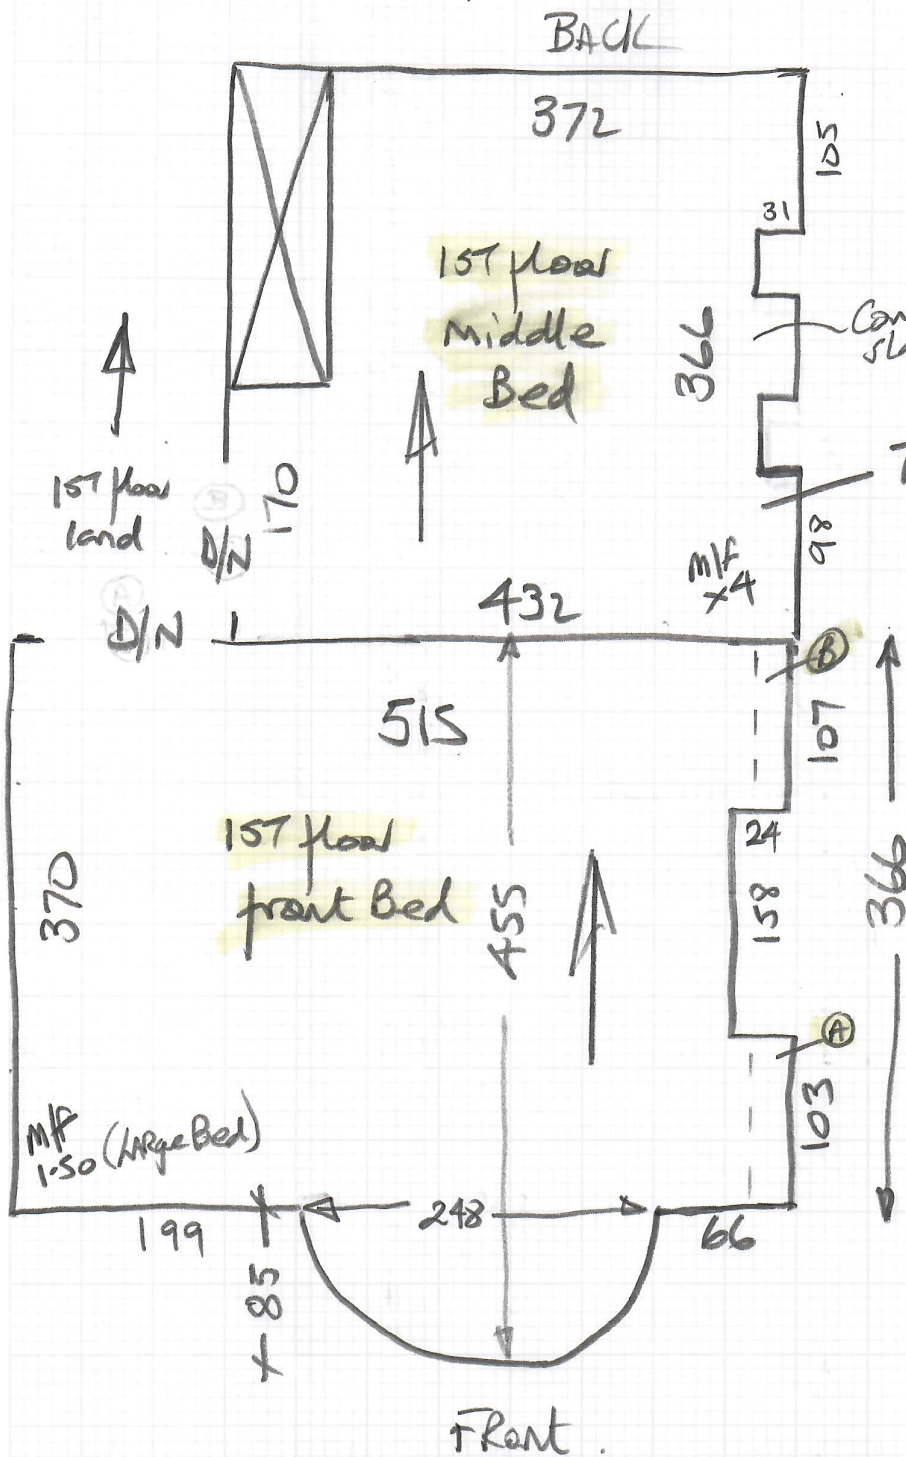 BACK
372
105
31
1ST floor
middle
Bed
366
Con
1ST floor
land
170
D/N
98
M/F
x4
432
D/N
B
515
107
1ST floor
front Bed
24
370
455
158
366
A
103
M/F
1.50 (LARge Bed)
199
248
66
85
FRont.